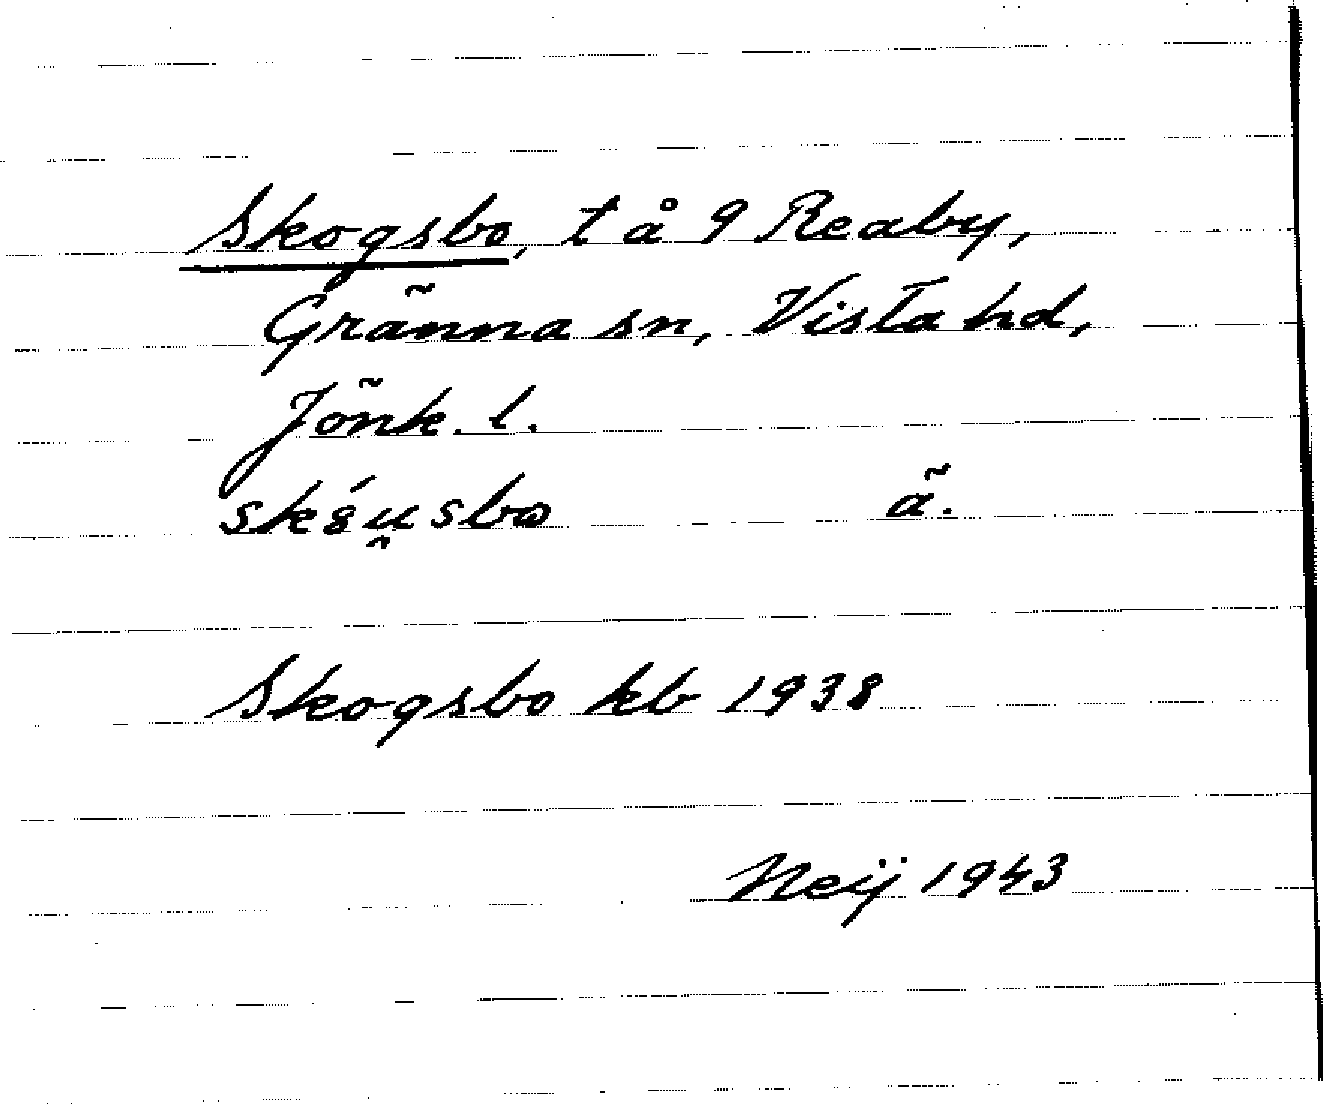 Skogsbo, t å 9 Reaby,
Gränna sn, Vista hd,
Jönk. l.
sk8́u̯sbω ä.
Skogsbo kb 1938
Neij 1943